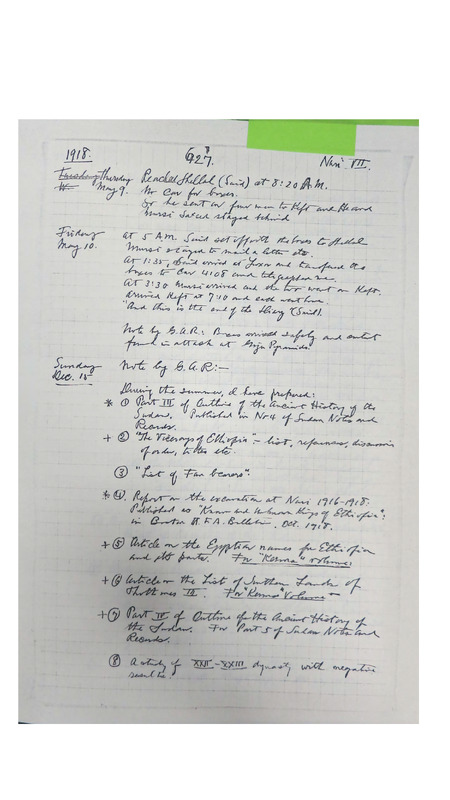 1918.
627.
Nuri VII.
Tuesday Thursday Reached Shellal (Said) at 8:20 A.M.
May 9. No car for boxes.
So he sent on four men to Keft and he and
Mursi Saleed stayed behind
Friday
May 10.
At 5 A.M. Said set off with the boxes to Shellal
Mursi stayed to mail a letter etc.
At 1:35, Said arrived at Luxor and transferred the
boxes to Car 4105 and telegraphed me.
At 3:30 Mursi arrived and the two went on Keft.
Arrived Keft at 7:10 and each went home.
"And this is the end of the Diary (Said).
Note by G.A.R: Boxes arrived safely and
found in attack at Giza Pyramids.
Sunday
Dec. 15
Note by G.A.R:—
During the summer, I have prepared:
* ① Part III of Outline of the Ancient History of the
Sudan. Published in No 4 of Sudan Notes and
Records.
+ ② "The Viceroys of Ethiopia":— list, references, discussion
of order, titles etc.
③ "List of Fan bearers".
* ④ Report on the excavation at Nuri 1916-1918.
Published as "Known and Unknown Kings of Ethiopia";
in Boston M.F.A. Bulletin, Oct. 1918.
+ ⑤ Article on the Egyptian names for Ethiopia
and its parts. For "Kerma" volume:
+ ⑥ Article on the List of Southern Lands of
Thothmes III. For "Kerma" Volume —
+ ⑦ Part IV of Outline of the Ancient History of
the Sudan. For Part 5 of Sudan Notes and
Records.
⑧ A study of XXII-XXIII dynasty with negative
results.